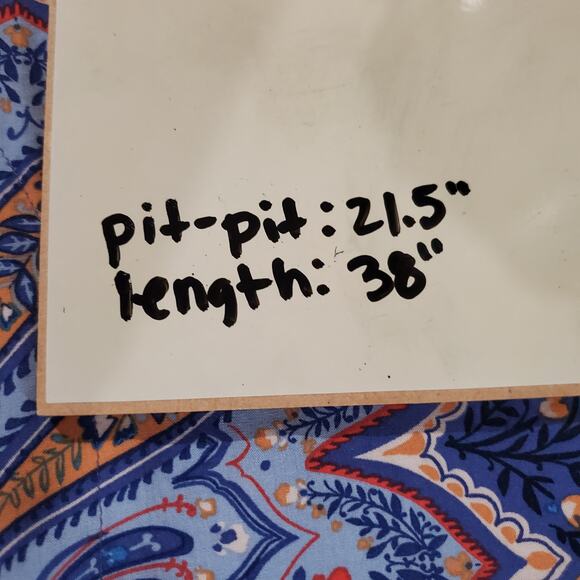 pit-pit: 21.5"
length: 38"